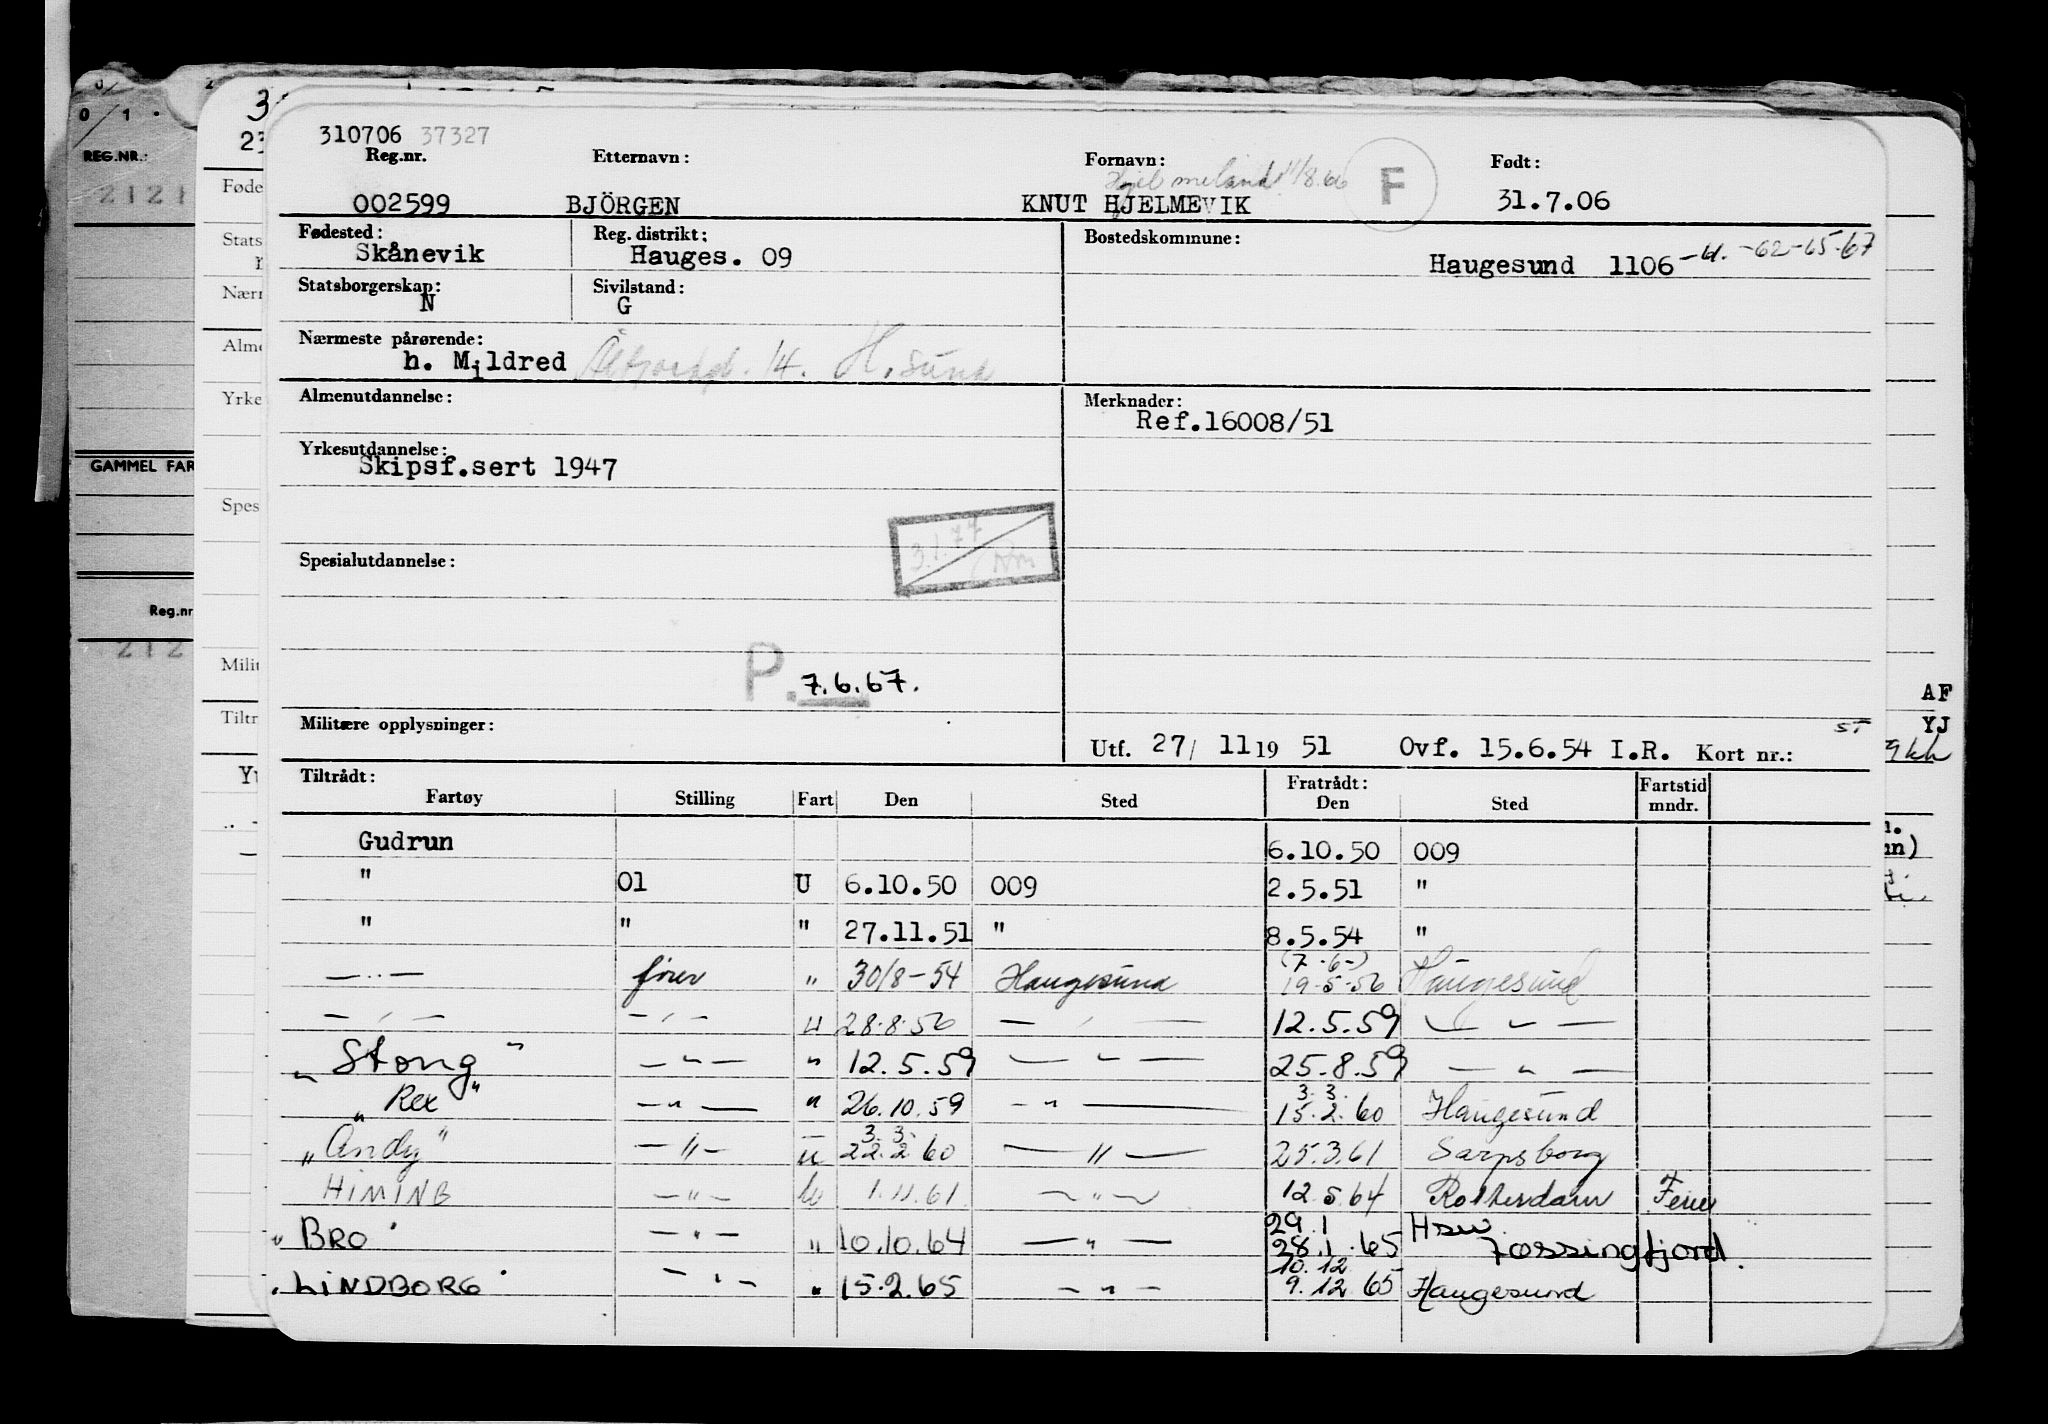 310706 37327
Reg.nr. Etternavn: Fornavn: Født:
11/8.66 F
002599 BJÖRGEN KNUT HJELMEVIK 31.7.06
Fødested: Reg. distrikt: Bostedskommune:
Skånevik Hauges. 09 Haugesund 1106 -61. -62-65-67
Statsborgerskap: Sivilstand:
N G
Nærmeste pårørende:
h. Mildred 14. H.sund
Almenutdannelse: Merknader:
Ref.16008/51
Yrkesutdannelse:
Skipsf.sert 1947
3.1.77
Spesialutdannelse:
P. 7.6.67.
Militære opplysninger:
Utf. 27/ 11 19 51 Ovf. 15.6.54 I.R. Kort nr.:
Tiltrådt: Fratrådt: Fartstid
Fartøy Stilling Fart Den Sted Den Sted mndr.
Gudrun 6.10.50 009
" 01 U 6.10.50 009 2.5.51 "
" " " 27.11.51 " 8.5.54 "
(7.6-)
— " — fører " 30/8-54 Haugesund 19-5-56 Haugesund
— " — — " — U 28.8.56 — " — 12.5.59 — " —
"Stong" — " — " 12.5.59 — " — 25.8.59 — " —
3. 3.
"Rex" — " — " 26.10.59 — " — 15.2.60 Haugesund
3. 3.
"Andy" — " — u 22.2.60 — " — 25.3.61 Sarpsborg
HIMINB — " — u 1.11.61 — " — 12.5.64 Rotterdam Ferie
29.1 Hsw.
"BRO" — " — " 10.10.64 — " — 28.1.65 Jøssingfjord.
10.12
"LINDBORG" — " — " 15.2.65 — " — 9.12.65 Haugesund
REG.NR.:
2121
GAMMEL FAR
Reg.nr
212
Føde
Stats
Nærm
Alme
Yrke
Spes
Milit
Tiltr
AF
YJ